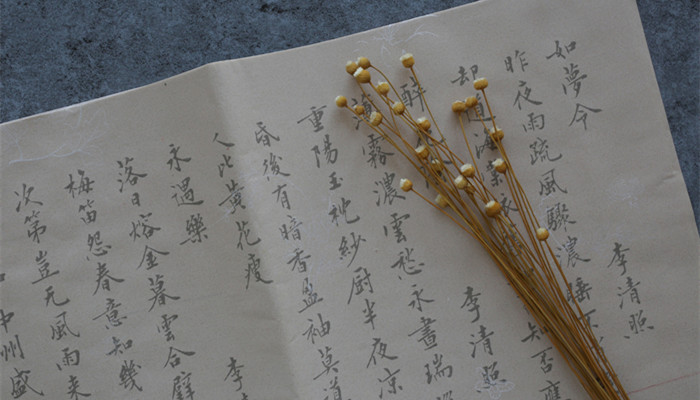 如夢令 李清照
昨夜雨疏風驟濃睡不
却道海棠依 知否應
醉 李清照
薄霧濃雲愁永晝瑞
重陽玉枕紗厨半夜涼
昏後有暗香盈袖莫道
人比黃花瘦
永遇樂 李清
落日熔金暮雲合璧
梅笛怨春意知幾
次第豈无風雨来
中州盛